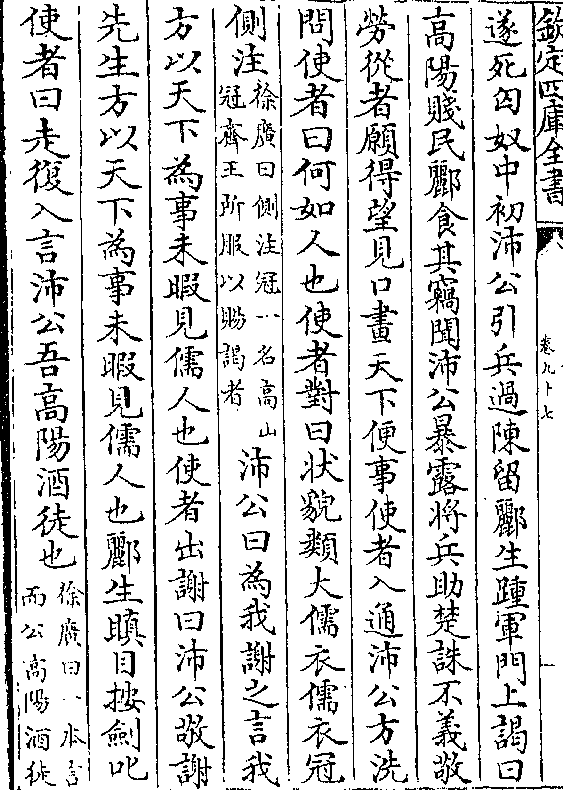 欽定四庫全書
卷九十七
遂死匈奴中初沛公引兵過陳留酈生踵軍門上謁曰
高陽賤民酈食其竊聞沛公暴露將兵助楚誅不義敬
勞從者願得望見口畫天下便事使者入通沛公方洗
問使者曰何如人也使者對曰状貌類大儒衣儒衣冠
側注徐廣曰側注冠一名高山冠齊王所服以賜謁者沛公曰為我謝之言我
方以天下為事未暇見儒人也使者出謝曰沛公敬謝
先生方以天下為事未暇見儒人也酈生瞋目按劍叱
使者曰走復入言沛公吾高陽酒徒也徐廣曰一本言而公高陽酒徒